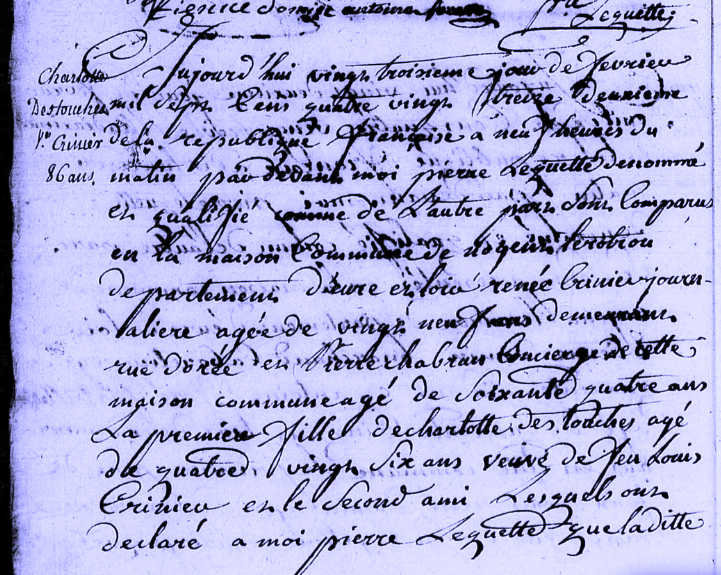 pierre Lequette
Charlotte
Destouches
Ve Crinier
86 ans.
Aujourd'hui vingt troisieme jour de fevrier
mil sept Cens quatre vingt treize deuxieme
de la republique française a neuf heures du
matin par devant moi pierre Lequette denommé
et qualifié comme de L'autre part sont Comparus
en la maison Commune de nogent le rotrou
departement d'eure et loir renée Crinier journ-
aliere agée de vingt neuf ans demeurant
rue dorée et Pierre chabran Concierge de cette
maison commune agé de Soixante quatre ans
La premiere fille de charlotte des touches agé
de quatre vingt Six ans veuve de feu Louis
Crinier et le Second ami Lesquels ont
declaré a moi pierre Lequette que laditte